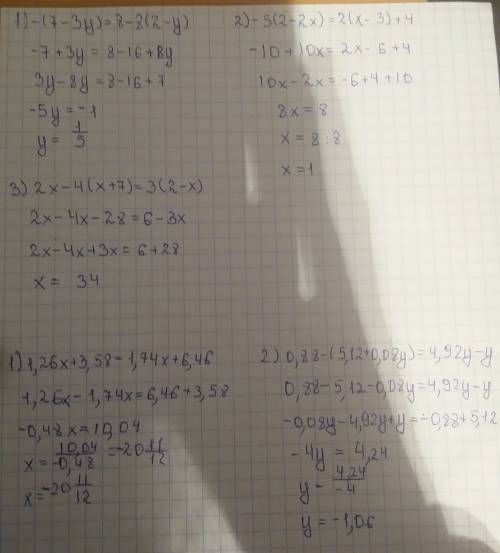 1) -(7-3y)=8-8(2-y)
-7+3y=8-16+8y
3y-8y=8-16+7
-5y=-1
y=1/5
2) -5(2-2x)=2(x-3)+4
-10+10x=2x-6+4
10x-2x=-6+4+10
8x=8
x=8:8
x=1
3) 2x-4(x+7)=3(2-x)
2x-4x-28=6-3x
2x-4x+3x=6+28
x= 34
1) 1,26x+3,58=1,74x+6,46
1,26x-1,74x=6,46+3,58
-0,48x=10,04
x=10,04/-0,48=-20 11/12
x=-20 11/12
2) 0,88-(5,12+0,08y)=4,92y-y
0,88-5,12-0,08y=4,92y-y
-0,08y-4,92y+y=-0,88+5,12
-4y=4,24
y=4,24/-4
y=-1,06